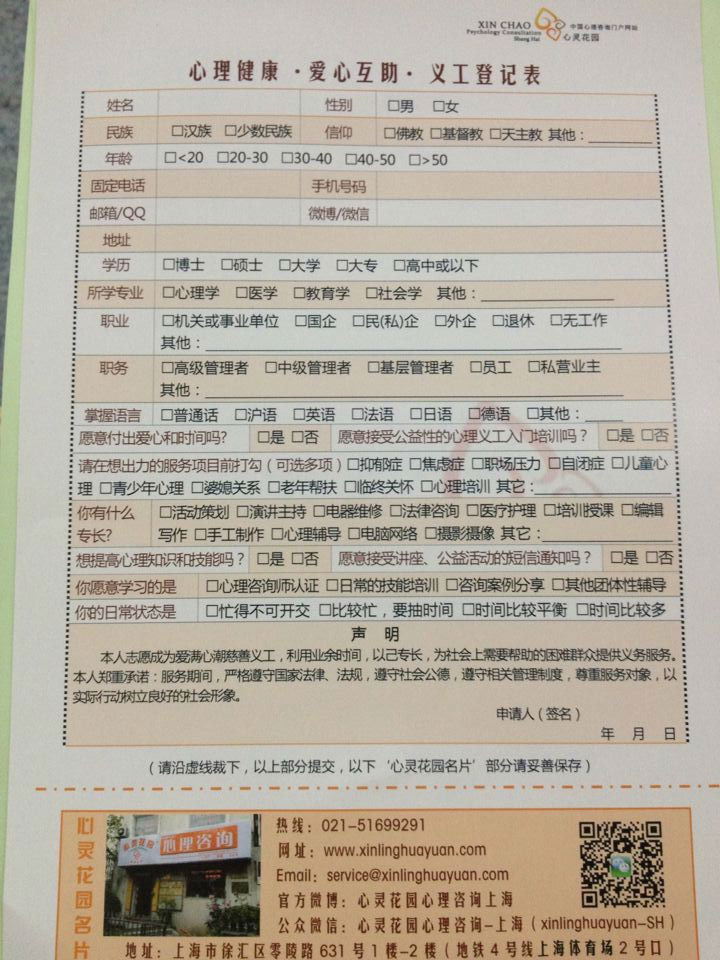 XIN CHAO
Psychology Consultation
Shang Hai
中国心理咨询门户网站
心灵花园
心理健康 · 爱心互助 · 义工登记表
姓名 性别 □男 □女
民族 □汉族 □少数民族 信仰 □佛教 □基督教 □天主教 其他：________
年龄 □<20 □20-30 □30-40 □40-50 □>50
固定电话 手机号码
邮箱/QQ 微博/微信
地址
学历 □博士 □硕士 □大学 □大专 □高中或以下
所学专业 □心理学 □医学 □教育学 □社会学 其他：________
职业 □机关或事业单位 □国企 □民(私)企 □外企 □退休 □无工作
其他：________
职务 □高级管理者 □中级管理者 □基层管理者 □员工 □私营业主
其他：________
掌握语言 □普通话 □沪语 □英语 □法语 □日语 □德语 □其他：_____
愿意付出爱心和时间吗? □是 □否 愿意接受公益性的心理义工入门培训吗？ □是 □否
请在想出力的服务项目前打勾（可选多项）□抑郁症 □焦虑症 □职场压力 □自闭症 □儿童心
理 □青少年心理 □婆媳关系 □老年帮扶 □临终关怀 □心理培训 其它：________
你有什么 □活动策划 □演讲主持 □电器维修 □法律咨询 □医疗护理 □培训授课 □编辑
专长? 写作 □手工制作 □心理辅导 □电脑网络 □摄影摄像 其它：________
想提高心理知识和技能吗？ □是 □否 愿意接受讲座、公益活动的短信通知吗？ □是 □否
你愿意学习的是 □心理咨询师认证 □日常的技能培训 □咨询案例分享 □其他团体性辅导
你的日常状态是 □忙得不可开交 □比较忙，要抽时间 □时间比较平衡 □时间比较多
声 明
本人志愿成为爱满心潮慈善义工，利用业余时间，以己专长，为社会上需要帮助的困难群众提供义务服务。
本人郑重承诺：服务期间，严格遵守国家法律、法规，遵守社会公德，遵守相关管理制度，尊重服务对象，以
实际行动树立良好的社会形象。
申请人（签名）
年 月 日
（请沿虚线裁下，以上部分提交，以下‘心灵花园名片’部分请妥善保存）
心灵花园名片
心理咨询
热线：021-51699291
网址：www.xinlinghuayuan.com
Email：service@xinlinghuayuan.com
官方微博：心灵花园心理咨询上海
公众微信：心灵花园心理咨询-上海（xinlinghuayuan-SH）
地址：上海市徐汇区零陵路 631 号 1 楼-2 楼（地铁 4 号线上海体育场 2 号口）